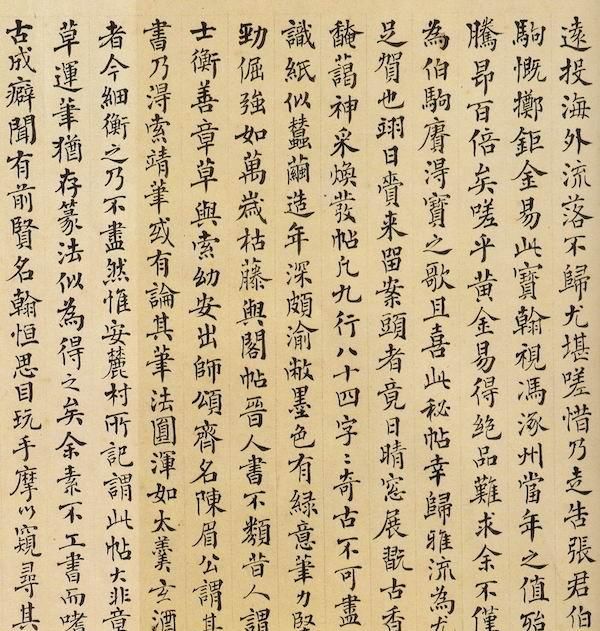 遠投海外流落不歸尤堪嗟惜乃走告張君伯
駒慨擲鉅金易此寶翰視馮涿州當年之值殆
騰昂百倍矣嗟乎黃金易得絕品難求余不僅
為伯駒賡得寶之歌且喜此秘帖幸歸雅流為尤
足賀也翊日賷来留案頭者竟日晴窓展翫古香
馣藹神采煥發帖凡九行八十四字〻奇古不可盡
識紙似蠶繭造年深頗渝敝墨色有緑意筆力堅
勁倔強如萬歲枯藤與閣帖晉人書不類昔人謂
士衡善章草與索幼安出師頌齊名陳眉公謂其
書乃得索靖筆或有論其筆法圓渾如太羹玄酒
者今細衡之乃不盡然惟安麓村所記謂此帖大非章
草運筆猶存篆法似為得之矣余素不工書而嗜
古成癖聞有前賢名翰恒思目玩手摩以窺尋其